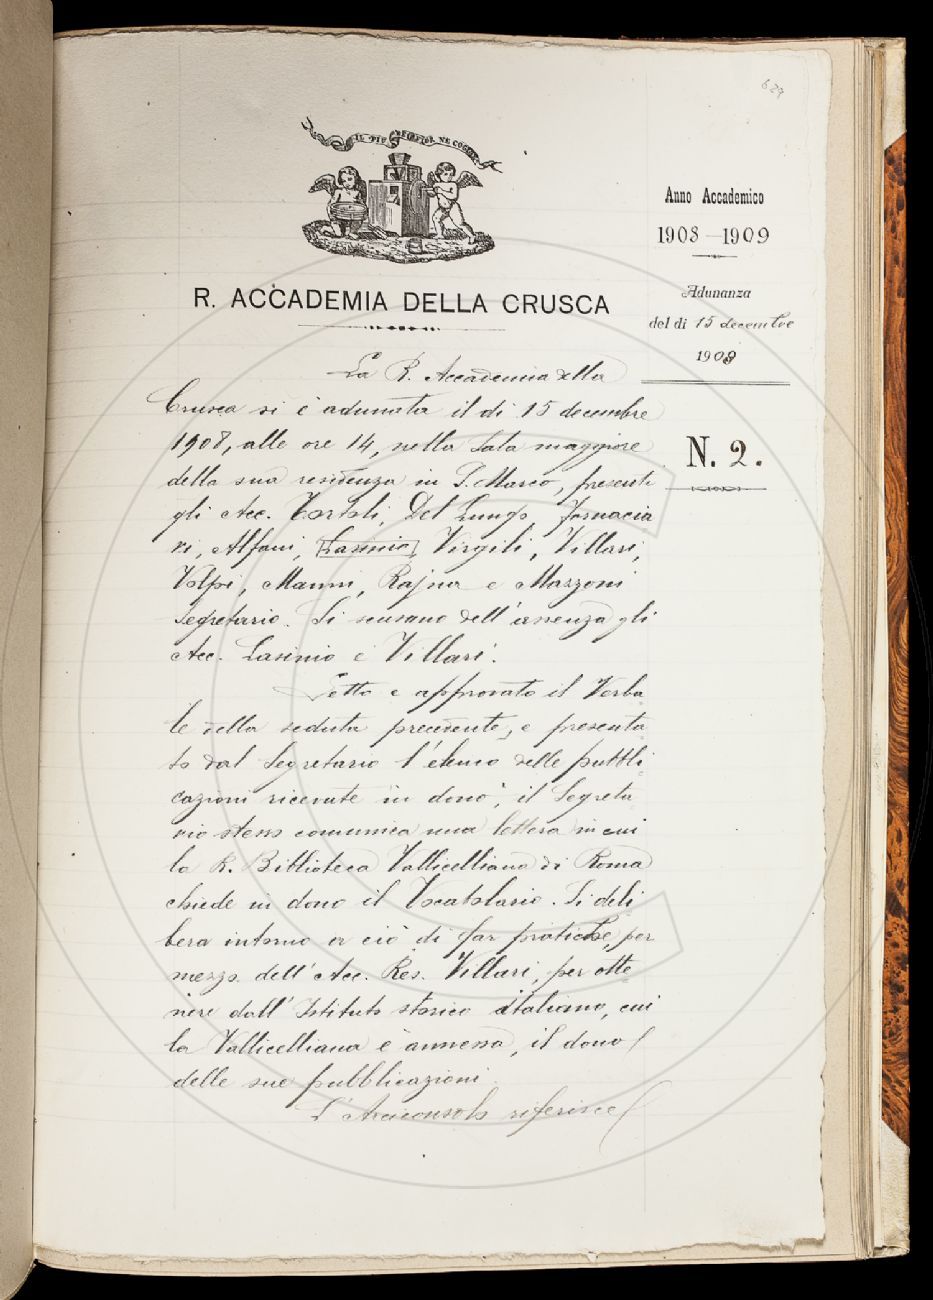 627
IL PIÙ BEL FIOR NE COGLIE
Anno Accademico
1908-1909
Adunanza
del dì 15 decembre
1908
R. ACCADEMIA DELLA CRUSCA
N. 2.
La R. Accademia della
Crusca si è adunata il dì 15 decembre
1908, alle ore 14, nella Sala maggiore
della sua residenza in S. Marco, presenti
gli Acc. Tortoli, Del Lungo, Fornacia
ri, Alfani, Lasinio, Virgili, Villari,
Volpi, Manni, Rajna e Mazzoni
Segretario. Si scusano dell'assenza gli
Acc. Lasinio e Villari.
Letto e approvato il Verba
le della seduta precedente, e presenta
to dal Segretario l'elenco delle pubbli
cazioni ricevute in dono, il Segreta
rio stesso comunica una lettera in cui
la R. Biblioteca Vallicelliana di Roma
chiede in dono il Vocabolario. Si deli
bera intorno a ciò di far pratiche, per
mezzo dell'Acc. Res. Villari, per otte
nere dall'Istituto storico italiano, cui
la Vallicelliana è annessa, il dono
delle sue pubblicazioni.
L'Arciconsolo riferisce